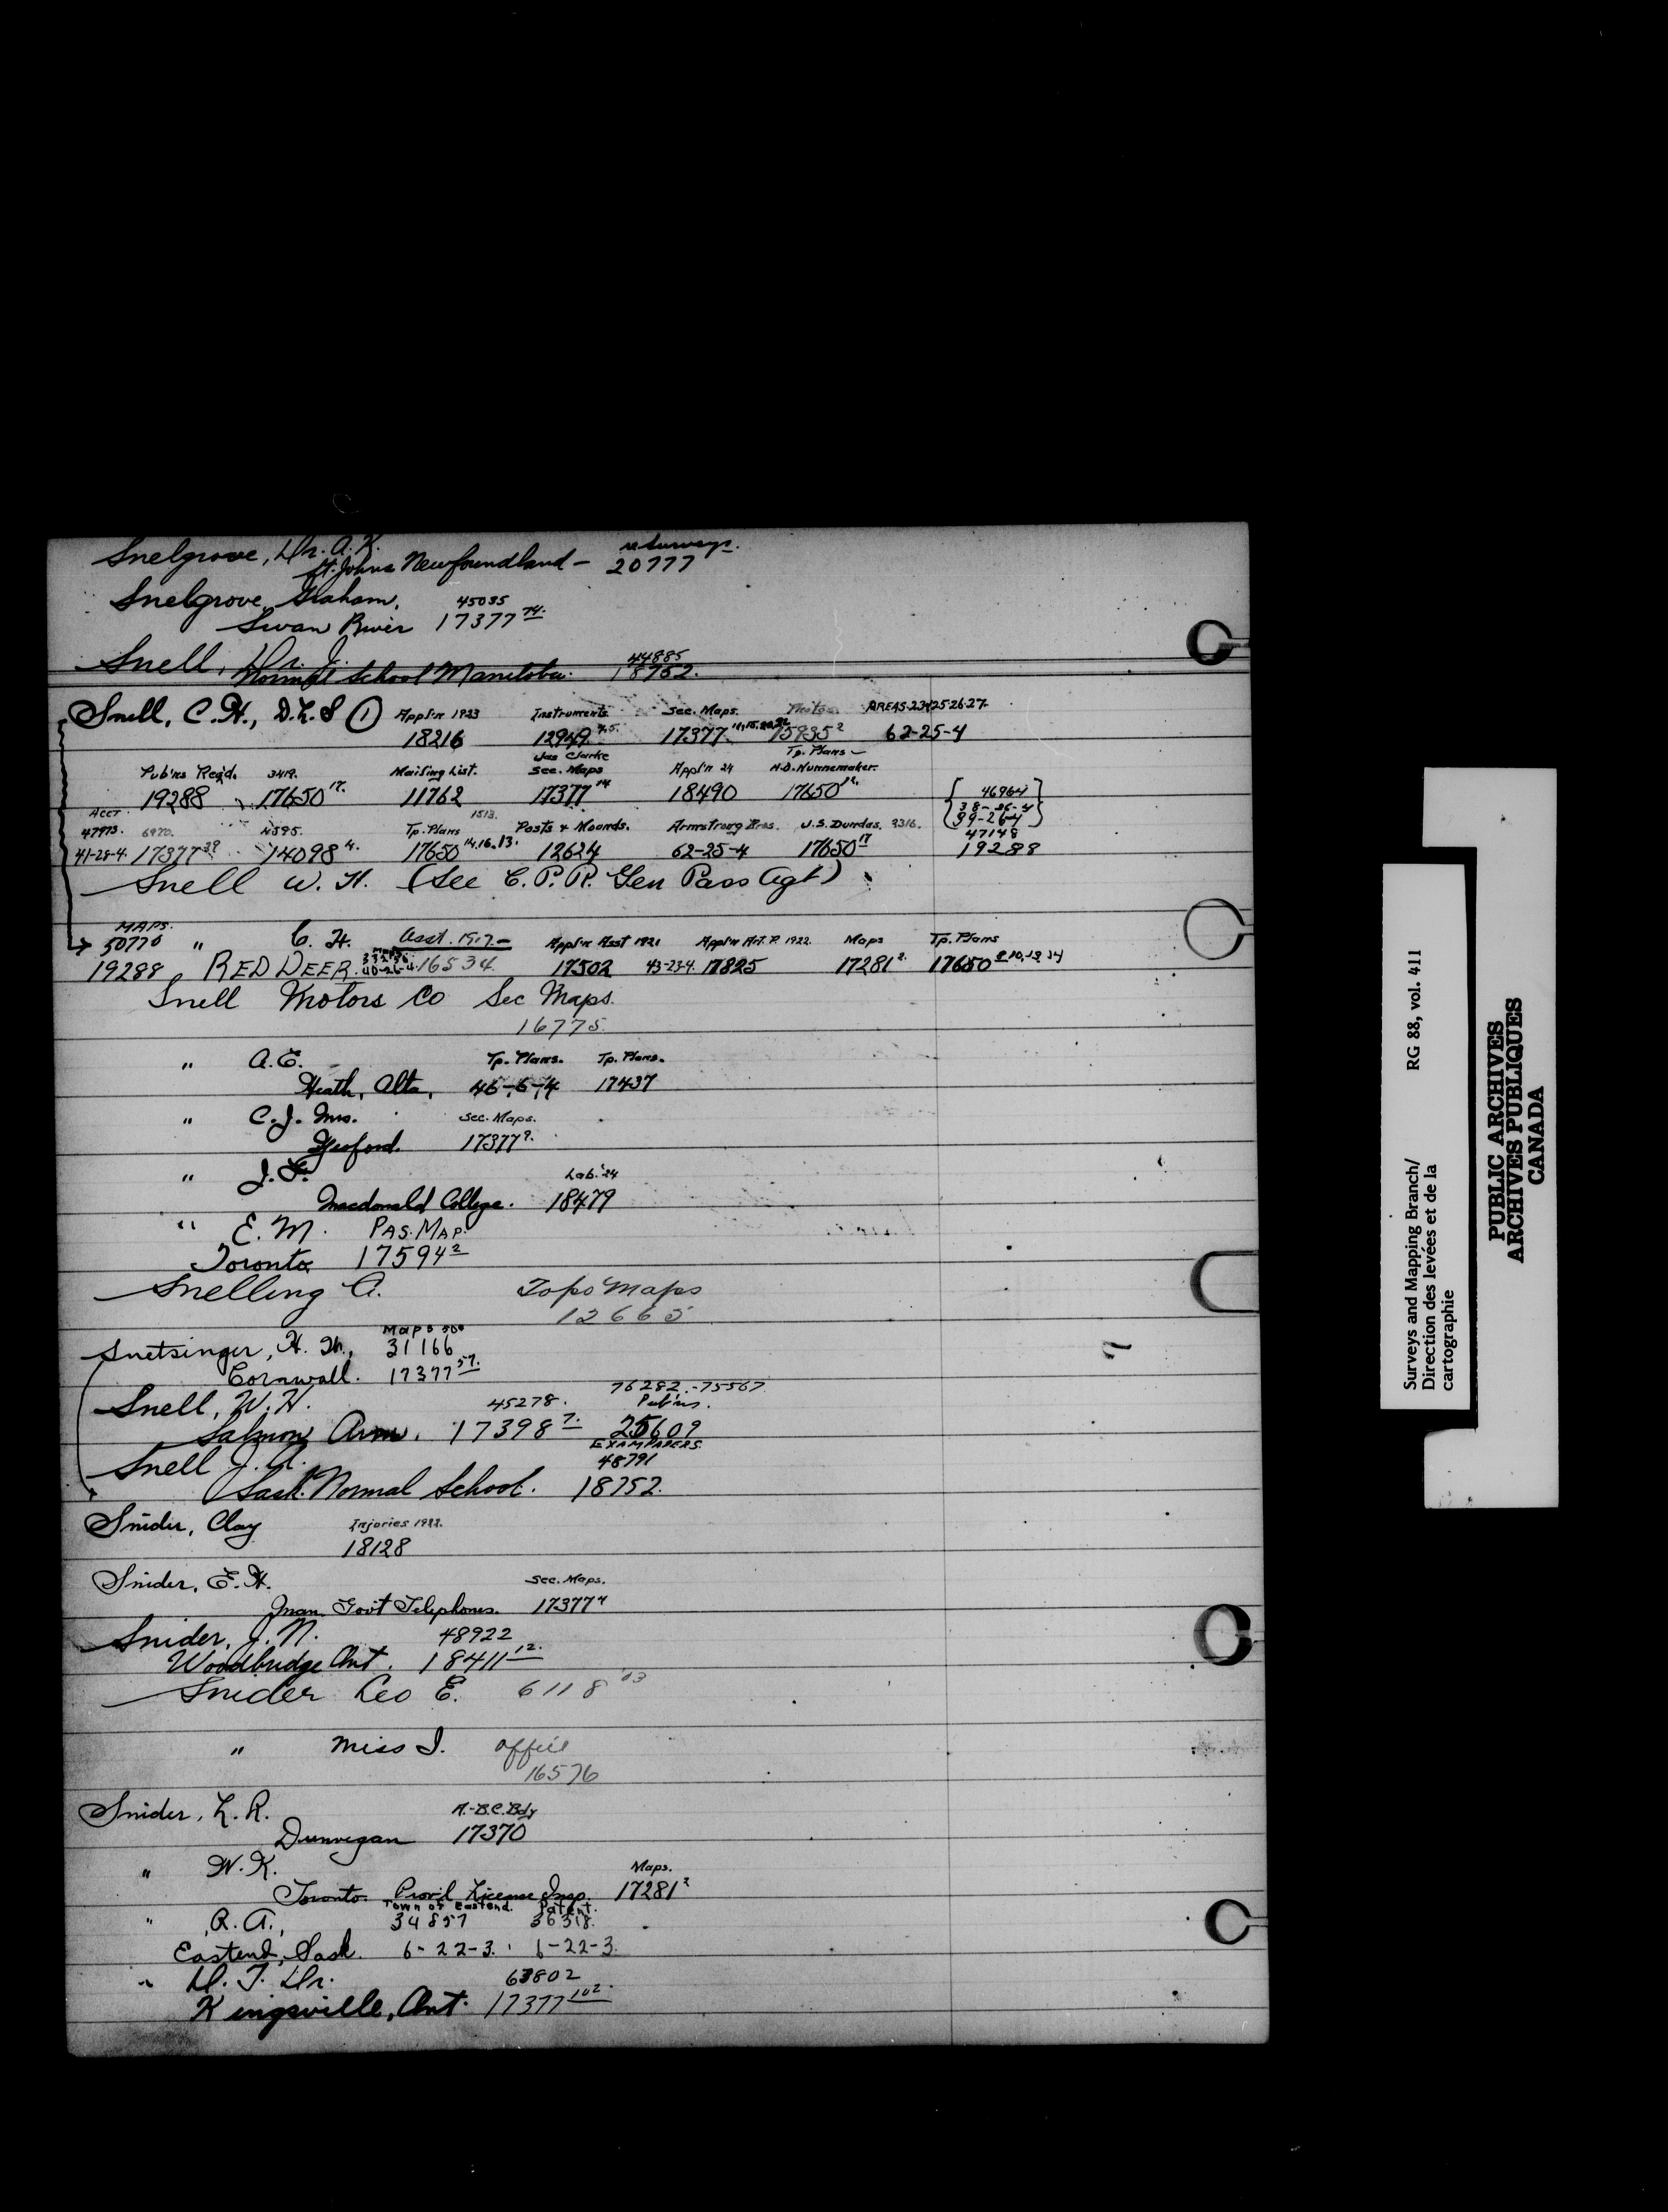 Snelgrove, Dr. A. K. resurveys.
St. Johns Newfoundland - 20777
Snelgrove, Graham, 45035
Swan River 17377 74.
Snell, Dr. J. 44885
Normal School Manitoba. 18752.
Snell, C. H., D.L.S (1) Appl'n 1923 Instruments Sec. Maps. AREAS-23-4-25-26-27.
18216 12949 17377 15935 2 62-25-4
Jas Clarke Tp. Plans
Pub'ns Req'd. 3419. Mailing List. Sec. Maps Appl'n 24 H.D. Nunnemaker.
19288 17650 17. 11762 17377 14 18490 17650 46964
38-26-4
39-26-4
Acct 1513.
47973. 6970. 4595. Tp. Plans Posts & Mounds. Armstrong Bros. J.S. Dundas. 9316. 47148
41-28-4. 17377 39 14098 4. 17650 14.16.13. 12624 62-25-4 17650 17 19288
Snell W. H. (See C.P.R. Gen Pass Agt)
MAPS.
50776 " C. H. Asst. 1917- Appl'n Asst 1921 Appl'n Art. P. 1922. Maps Tp. Plans
19288 RED DEER. 40-26-4. 16534 17502 43-23-4. 17825 17281 2. 17650
Snell Motors Co Sec Maps.
16775.
" A. E. Tp. Plans. Tp. Plans.
Heath, Alta, 46-6-4 17437
" C. J. Mrs. Sec. Maps.
Yeoford. 17377 9.
" J. F. Lab. '24
Macdonald College. 18479
" E. M. PAS. MAP.
Toronto 17594 2
Snelling A. Topo Maps
12665
Snetsinger, H. W., Maps
31166
Cornwall. 17377 57.
76282.-75567
Snell, W. H. 45278. Pub'ns.
Salmon Arm. 17398 7. 25609
EXAM PAPERS.
Snell J. A. 48791
Sask. Normal School. 18752.
Snider, Clay Injuries 1922.
18128
Snider, E. H. Sec. Maps.
Man. Gov't Telephones. 17377 4
Snider, J. N. 48922
Woodbridge Ont. 18411 12.
Snider Leo E. 6118 '03
" Miss I. office
16576
Snider, L. R. A.-B.C. Bdy
Dunvegan 17370
" W. K. Maps.
Toronto. Prov'l License Insp. 17281 2
Town of Eastend. Patent.
" R. A., 34857 36318.
Eastend, Sask. 6-22-3. 6-22-3.
" D. T. Dr. 63802
Kingsville, Ont. 17377 102.
Surveys and Mapping Branch/ RG 88, vol. 411
Direction des levées et de la
cartographie
PUBLIC ARCHIVES
ARCHIVES PUBLIQUES
CANADA